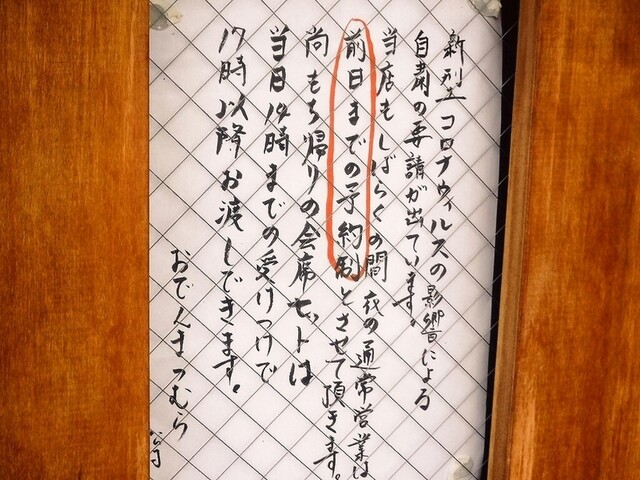 新型コロナウィルスの影響による
自粛の要請が出ています。
当店もしばらくの間 夜の通常営業は
前日までの予約制とさせて頂きます。
尚もち帰りの会席セットは
当日14時までの受けつけで
17時以降お渡しできます。
おでんまつむら